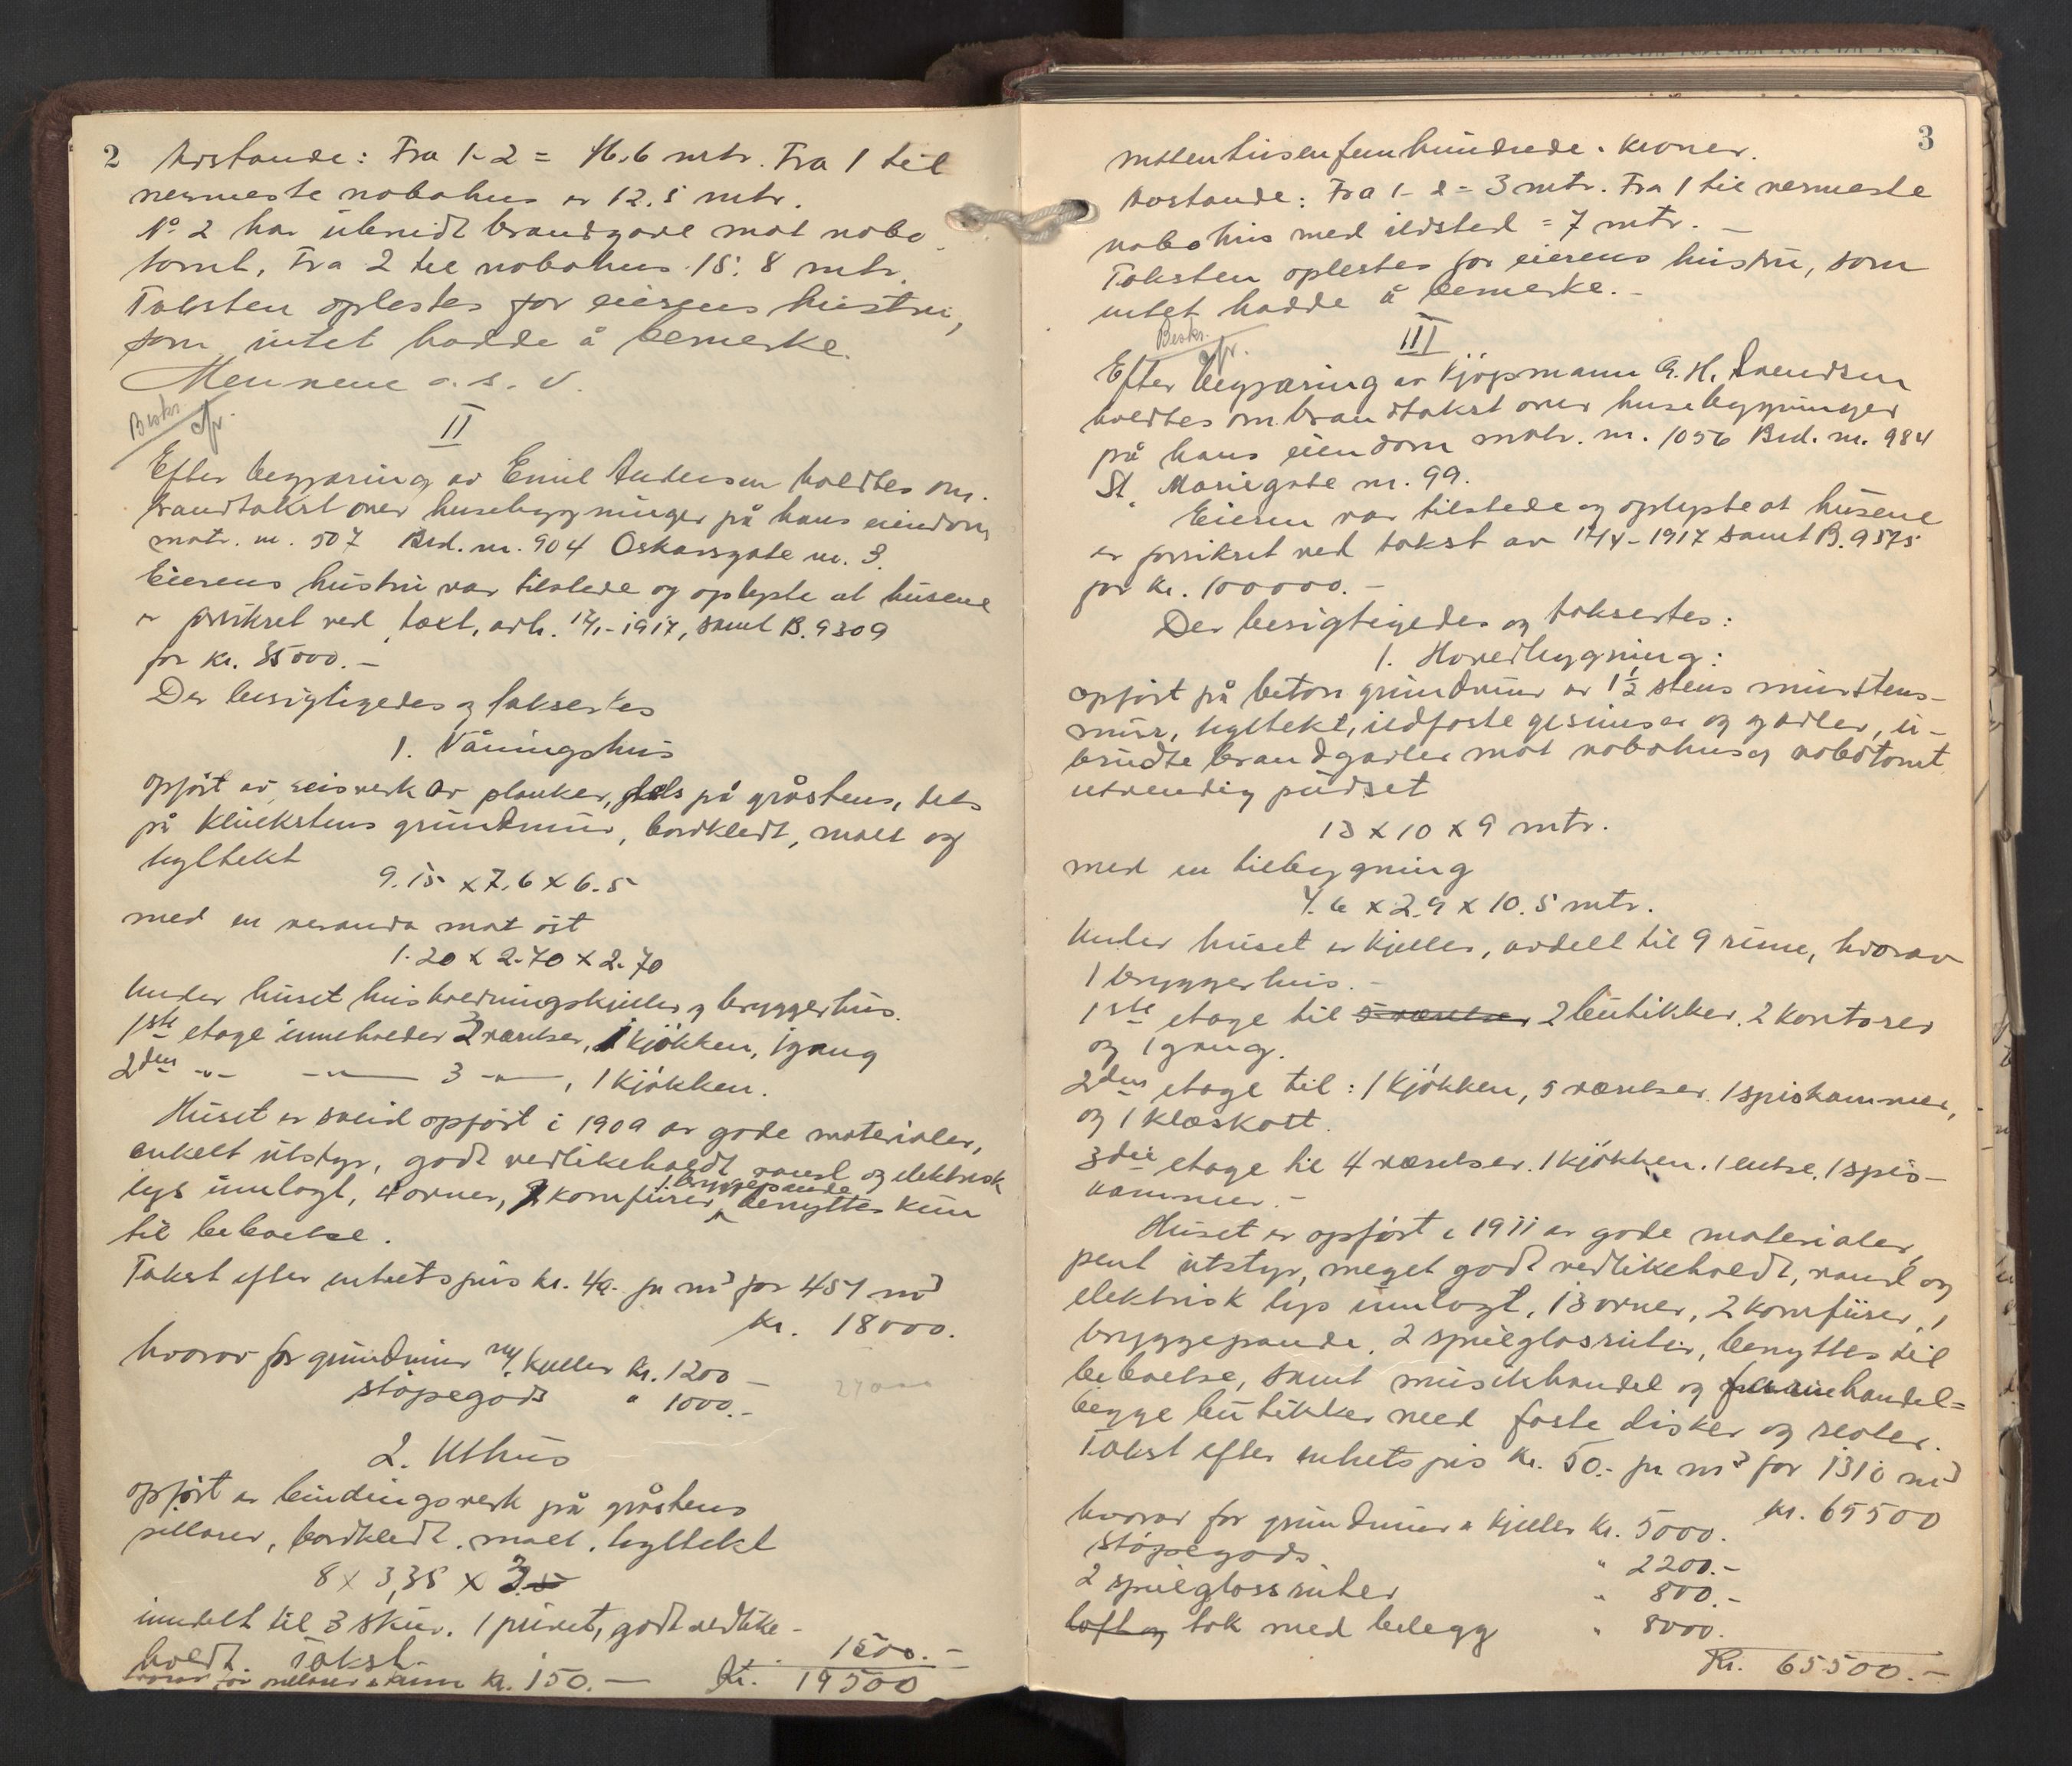 2 Avstande: Fra 1-2 = 16.6 mtr. Fra 1 til
nermeste nabohus er 12.5 mtr.
No 2 har ubrudt brandgavl mot nabo-
tomt. Fra 2 til nabohus 15.8 mtr.
Taksten oplestes for eierens hustru,
som intet hadde å bemerke.
Mennene o.s.v.
Beskr.
II
Efter begjæring av Emil Andersen holdtes om-
brandtakst over husebygninger på hans eiendom
matr. nr. 507 Brd. nr. 904 Oskarsgate nr. 3.
Eierens hustru var tilstede og oplyste at husene
er forsikret ved taxt. avh. 17/1-1917, samt B. 9309
for kr. 35000.-
Der besigtigedes og taksertes
1. Våningshus
opført av reisverk av planker, dels på gråstens, dels
på klinkstens grundmur, bordkledt, malt og
tegltekt
9.15 x 7.6 x 6.5
med en veranda mot øst
1.20 x 2.70 x 2.70
Under huset husholdningskjeller og bryggerhus.
1ste etage inneholder 2 værelser, 1 kjøkken, 1 gang
2den -"- -"- 3 -"-, 1 kjøkken.
Huset er opført i 1909 av gode materialer,
enkelt utstyr, godt vedlikeholdt, vand og elektrisk
lys innlagt, 4 ovner, 2 komfurer, 1 bryggepande benyttes kun
til beboelse.
Takst efter enhetspris kr. 40.- pr m3 for 451 m3
kr. 18000.
hvorav for grundmur m/ kjeller kr. 1200 -
støpegods " 1000.-
2. Uthus
opført av bindingsverk på gråstens
pillarer, bordkledt. malt. tegltekt
8 x 3,35 x 3
inndelt til 3 skur. 1 privet, godt vedlike-
holdt. Takst 1500.-
hvorav for pillarer kr. 150.- Kr. 19500
3
nittentusenfemhundrede - kroner.
Avstande: Fra 1-2 = 3 mtr. Fra 1 til nermeste
nabohus med ildsted = 7 mtr. -
Taksten oplestes for eierens hustru, som
intet hadde å bemerke. -
Beskr.
III
Efter begjæring av kjøpmann G. H. Svendsen
holdtes ombrandtakst over husebygninger
på hans eiendom matr. nr. 1056 Brd. nr. 984
St. Mariegate nr. 99.
Eieren var tilstede og oplyste at husene
er forsikret ved takst av 17/4-1917 samt B. 9575
for kr. 100000.-
Der besigtigedes og taksertes:
1. Hovedbygning:
opført på beton grundmur av 1½ stens murstens-
mur, tegltekt, ildfaste gesimser og gavler, u-
brudte brandgavler mot nabohus og nabotomt
utvendig pudset
13 x 10 x 9 mtr.
med en tilbygning
4.6 x 2.9 x 10.5 mtr.
Under huset er kjeller, avdelt til 9 rum, hvorav
1 bryggerhus. -
1ste etage til 5 værelser 2 butikker. 2 kontorer
og 1 gang.
2den etage til: 1 kjøkken, 5 værelser. 1 spiskammer,
og 1 klæskott.
3die etage til 4 værelser. 1 kjøkken. 1 entre. 1 spis-
kammer. -
Huset er opført i 1911 av gode materialer,
pent utstyr, meget godt vedlikeholdt, vand og
elektrisk lys innlagt, 13 ovner, 2 komfurer, 1
bryggepande. 2 speilglasruter, benyttes til
beboelse, samt musikhandel og handel-
begge butikker med faste disker og reoler.
Takst efter enhetspris kr. 50.- pr m3 for 1310 m3
kr. 65500
hvorav for grundmur & kjeller kr. 5000.
støpegods " 2200.-
2 speilglassruter " 800.-
loft og tak med belegg " 8000.
Kr. 65500.-